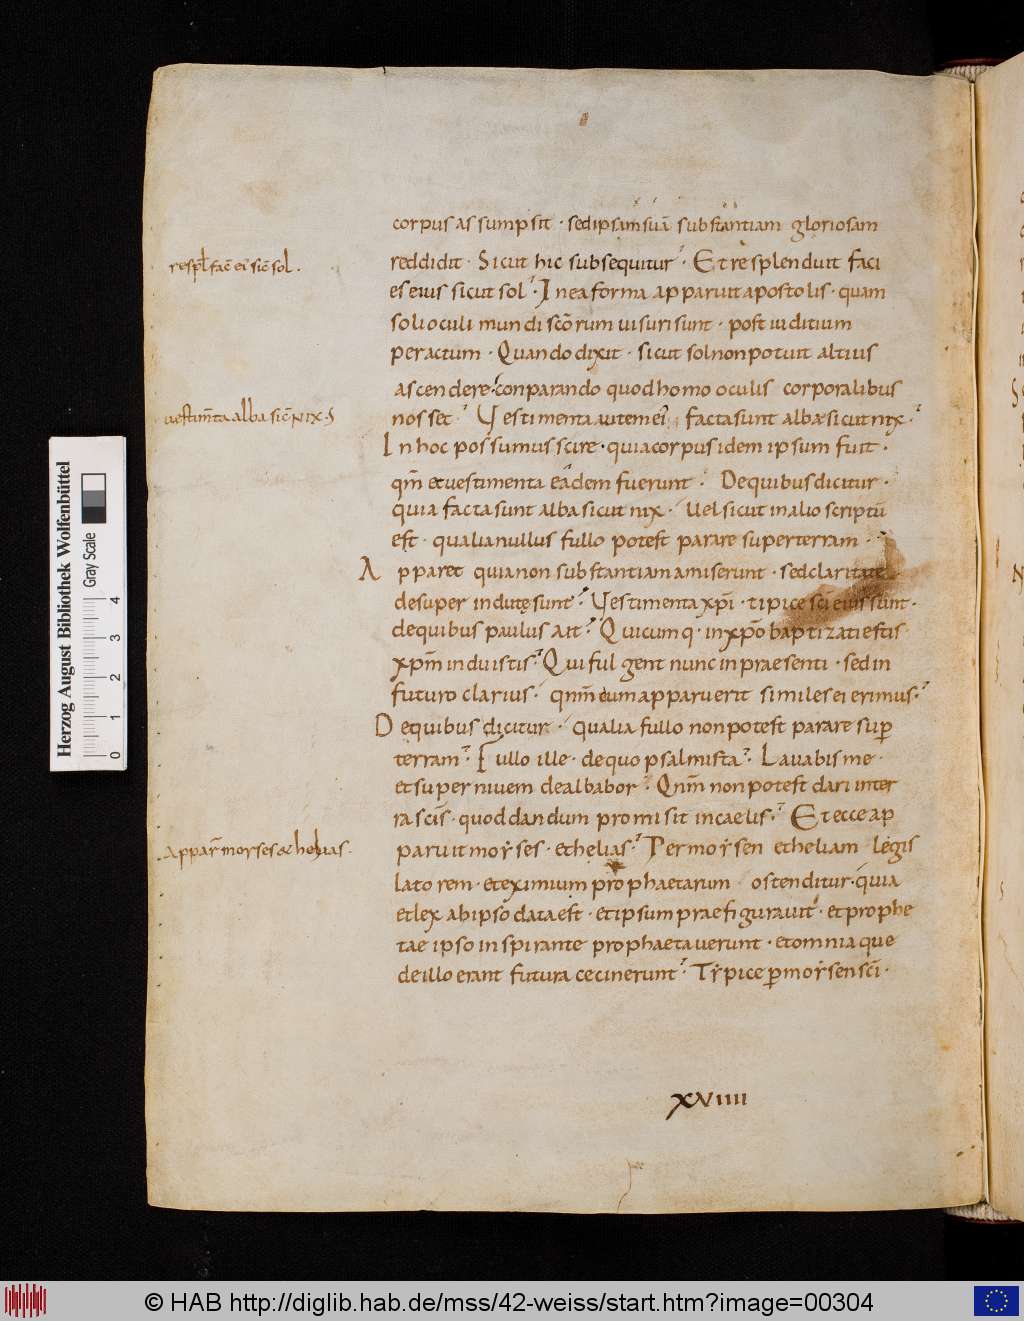 corpus assumpsit · sed ipsam suā substantiam gloriosam
respl̄ fac̄ ei' sic̄ sol .
reddidit · Sicut hic subsequitur · Et resplenduit faci
es eius sicut sol · In ea forma apparuit apostolis · quam
soli oculi mundi scōrum uisuri sunt · post iuditium
peractum · Quando dixit · sicut sol non potuit altius
ascendere · conparando quod homo oculis corporalibus
uestim̄ta alba sic̄ nix · S
nosset · Vestimenta autem ei' facta sunt alba sicut nix ·
In hoc possumus scire · quia corpus idem ipsum fuit ·
qm̄ et uestimenta eadem fuerunt · De quibus dicitur ·
quia facta sunt alba sicut nix · Uel sicut in alio scriptū
est · qualia nullus fullo potest parare super terram ·
Apparet quia non substantiam amiserunt · sed claritate
desuper indutę sunt · Vestimenta xp̄i · tipice sc̄i eius sunt ·
de quibus paulus ait · Quicumq · in xp̄o baptizati estis
xp̄m induistis · Qui fulgent nunc in praesenti · sed in
futuro clarius · qnm̄ cum apparuerit similes ei erimus ·
De quibus dicitur · qualia fullo non potest parare sup̄
terram · Fullo ille · de quo psalmista · Lauabis me ·
et super niuem dealbabor · Qnm̄ non potest dari in ter
ra sc̄is · quod dandum promisit in caelis · Et ecce ap
Appar̄ moyses & helias .
paruit moyses · et helias · Per moysen et heliam legis
latorem · et eximium prophaetarum ostenditur · quia
et lex ab ipso data est · et ipsum praefigurauit · et prophe
tae ipso inspirante prophaetauerunt · et omnia que
de illo erant futura cecinerunt · Typice p̄ moysen sc̄i ·
XVIIII
Herzog August Bibliothek Wolfenbüttel
Gray Scale
0 1 2 3 4
© HAB http://diglib.hab.de/mss/42-weiss/start.htm?image=00304